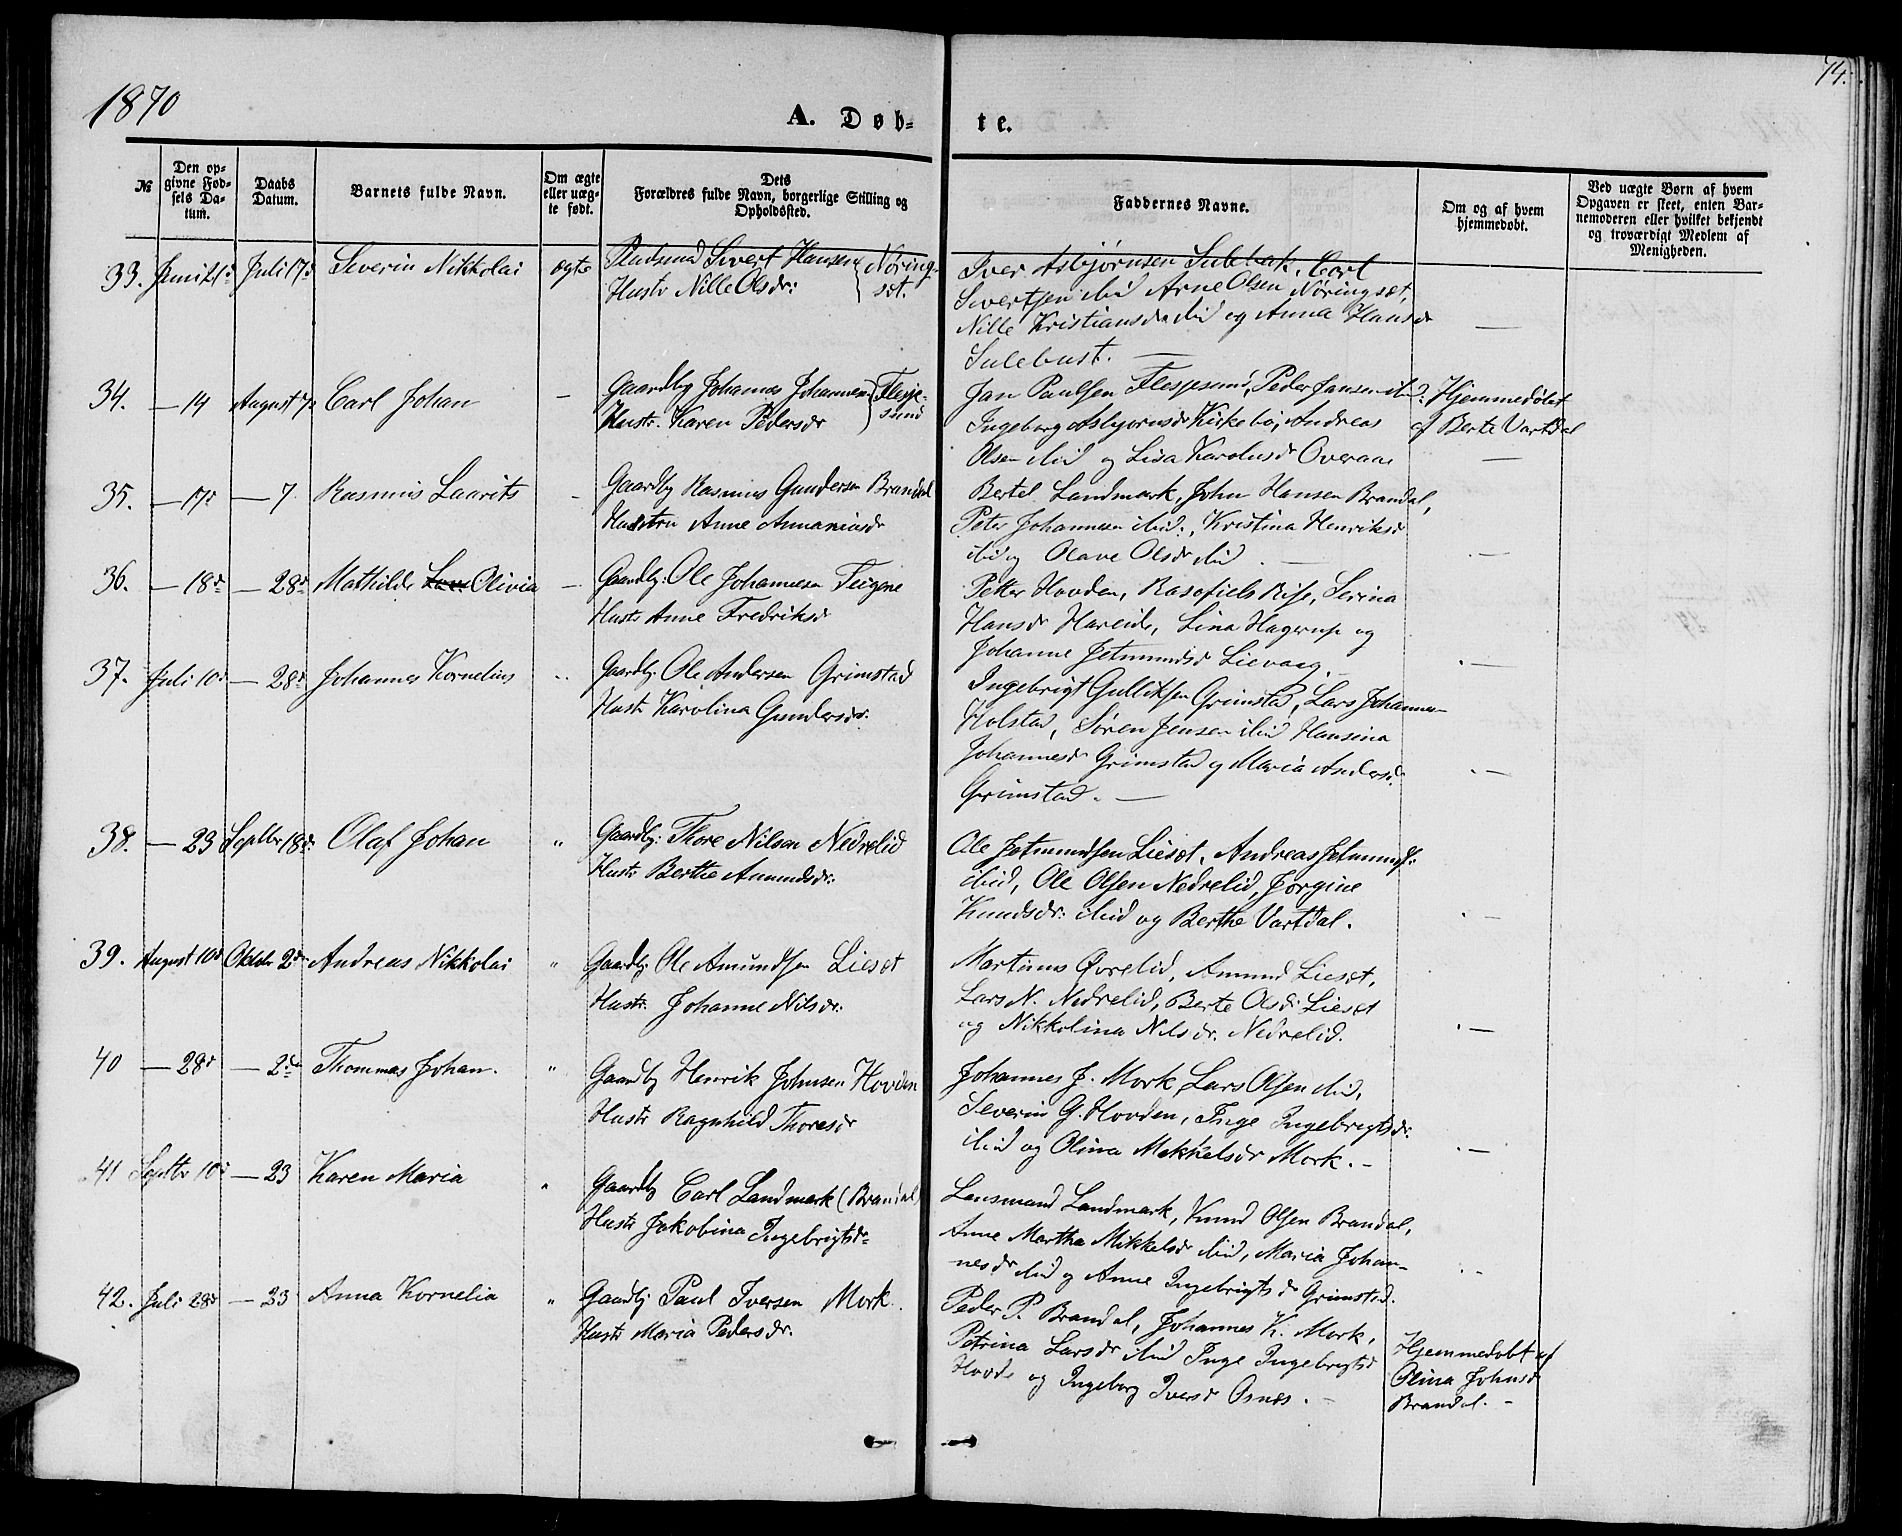 1870
A. Døb-
te.
74.
№
Den op-
givne Fød-
sels Da-
tum.
Daabs
Datum.
Barnets fulde Navn.
Om ægte
eller uæg-
te født.
Dets
Forældres fulde Navn, borgerlige Stilling og
Opholdssted.
Faddernes Navne.
Om og af hvem
hjemmedøbt.
Ved uægte Børn af hvem
Opgaven er skeet, enten Bar-
nemoderen eller hvilket bekjendt
og troværdigt Medlem af
Menigheden.
33. Juni Juli 17d Severin Nikkolai ægte Pladsmd Sivert Hansen Nøring-
Hustr Nille Olsdr: sæt.
Iver Asbjørnsen Sulebak, Carl
Sivertsen ibid Arne Olsen Nøringsæt,
Nille Kristiansdr ibid og Anna Hansdr
Sulebust. —
34. — 14 August 7d Carl Johan — Gaardbg Johannes Johannesen Flesje-
Hustr. Karen Pedersdr sund
Jan Paulsen Flesjesund, Peder Jansen ibid.
Ingeborg Asbjørnsdr Kirkebø, Andreas
Olsen ibid og Lisa Karolusdr Overaae
Hjemmedøbt
af Berte Vartdal
35. — 17d — 7 Rasmus Laurits — Gaardbg Rasmus Gundersen Brandal
Hustru Anne Annaniasdr
Bertel Landmark, John Hansen Brandal,
Peter Johannesen ibid:, Kristina Henriksdr
ibid og Olave Olsdr ibid —
36. — 18d — 28d Mathilde Olivia — Gaardbg: Ole Johannesen Teigene
Hustr Anne Fredriksdr
Petter Hovden, Rasmus Riise, Serina
Hansdr Hareide, Lina Hagerup og
Johanne Jetmundsdr Lievaag.
37. Juli 10d — 28d Johannes Kornelius Gaardbg: Ole Andersen Grimstad
Hustr Karolina Gundersdr:
Ingebrigt Gulliksen Grimstad, Lars Johannes-
Holstad, Søren Jensen ibid Hansina
Johannesdr Grimstad og Maria Andersd:
Grimstad. —
38. — 23 Septbr 18d: Olaf Johan " Gaardbg: Thore Nilsen Nedrelid
Hustr Berthe Amundsdr:
Ole Jetmundsen Lieset, Andreas Jetmunds:
ibid, Ole Olsen Nedrelid, Jørgine
Knudsdr: ibid og Berthe Vartdal.
39. August 10d Oktobr 2d Andreas Nikkolai " Gaardbg Ole Amundsen Lieset
Hustr: Johanne Nilsdr:
Martinus Øvrelid, Amund Lieset,
Lars N. Nedrelid, Berte Olsdr Lieset
og Nikkolina Nilsdr. Nedrelid.
40 — 28d — 2d Thommas Johan. " Gaardbg Henrik Johnsen Hovden
Hustr Ragnhild Thoresdr
Johannes J. Mork, Lars Olsen ibid,
Severin G. Hovden, Inge Ingebrigtsdr:
ibid og Olina Mikkelsdr Mork. —
41 Septbr 10d — 23 Karen Maria " Gaardbg Carl Landmark (Brandal)
Hustr Jakobina Ingebrigtsdr
Lensmand Landmark, Knud Olsen Brandal,
Anne Martha Mikkelsdr ibid, Maria Johan-
nesdr ibid og Anne Ingebrigtsdr Grimstad.
42. Juli 28d — 23 Anna Kornelia " Gaardbg Paul Iversen Mork.
Hustr Maria Pedersdr.
Peder P. Brandal, Johannes K. Mork,
Petrina Larsdr ibid Inge Ingebrigtsd
Hovde og Ingeborg Iversdr Osnes. —
Hjemmedøbt af
Olina Johnsdr
Brandal. —